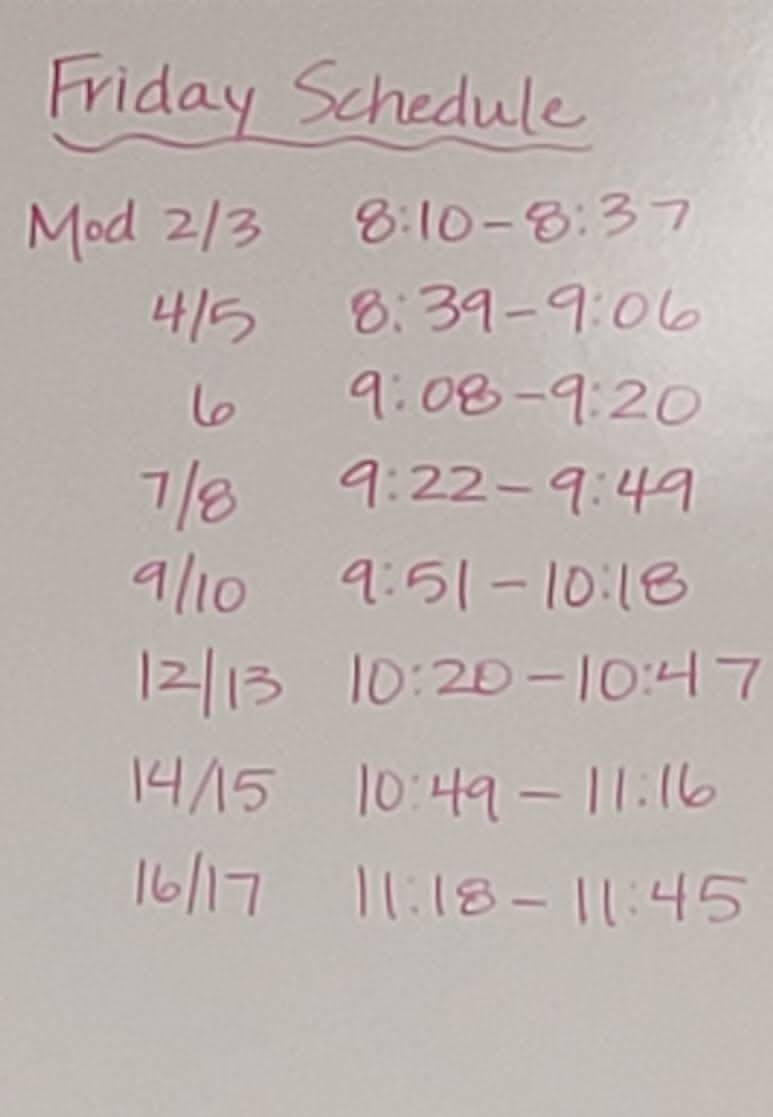 Friday Schedule
Mod 2/3 8:10-8:37
4/5 8:39-9:06
6 9:08-9:20
7/8 9:22-9:49
9/10 9:51-10:18
12/13 10:20-10:47
14/15 10:49-11:16
16/17 11:18-11:45